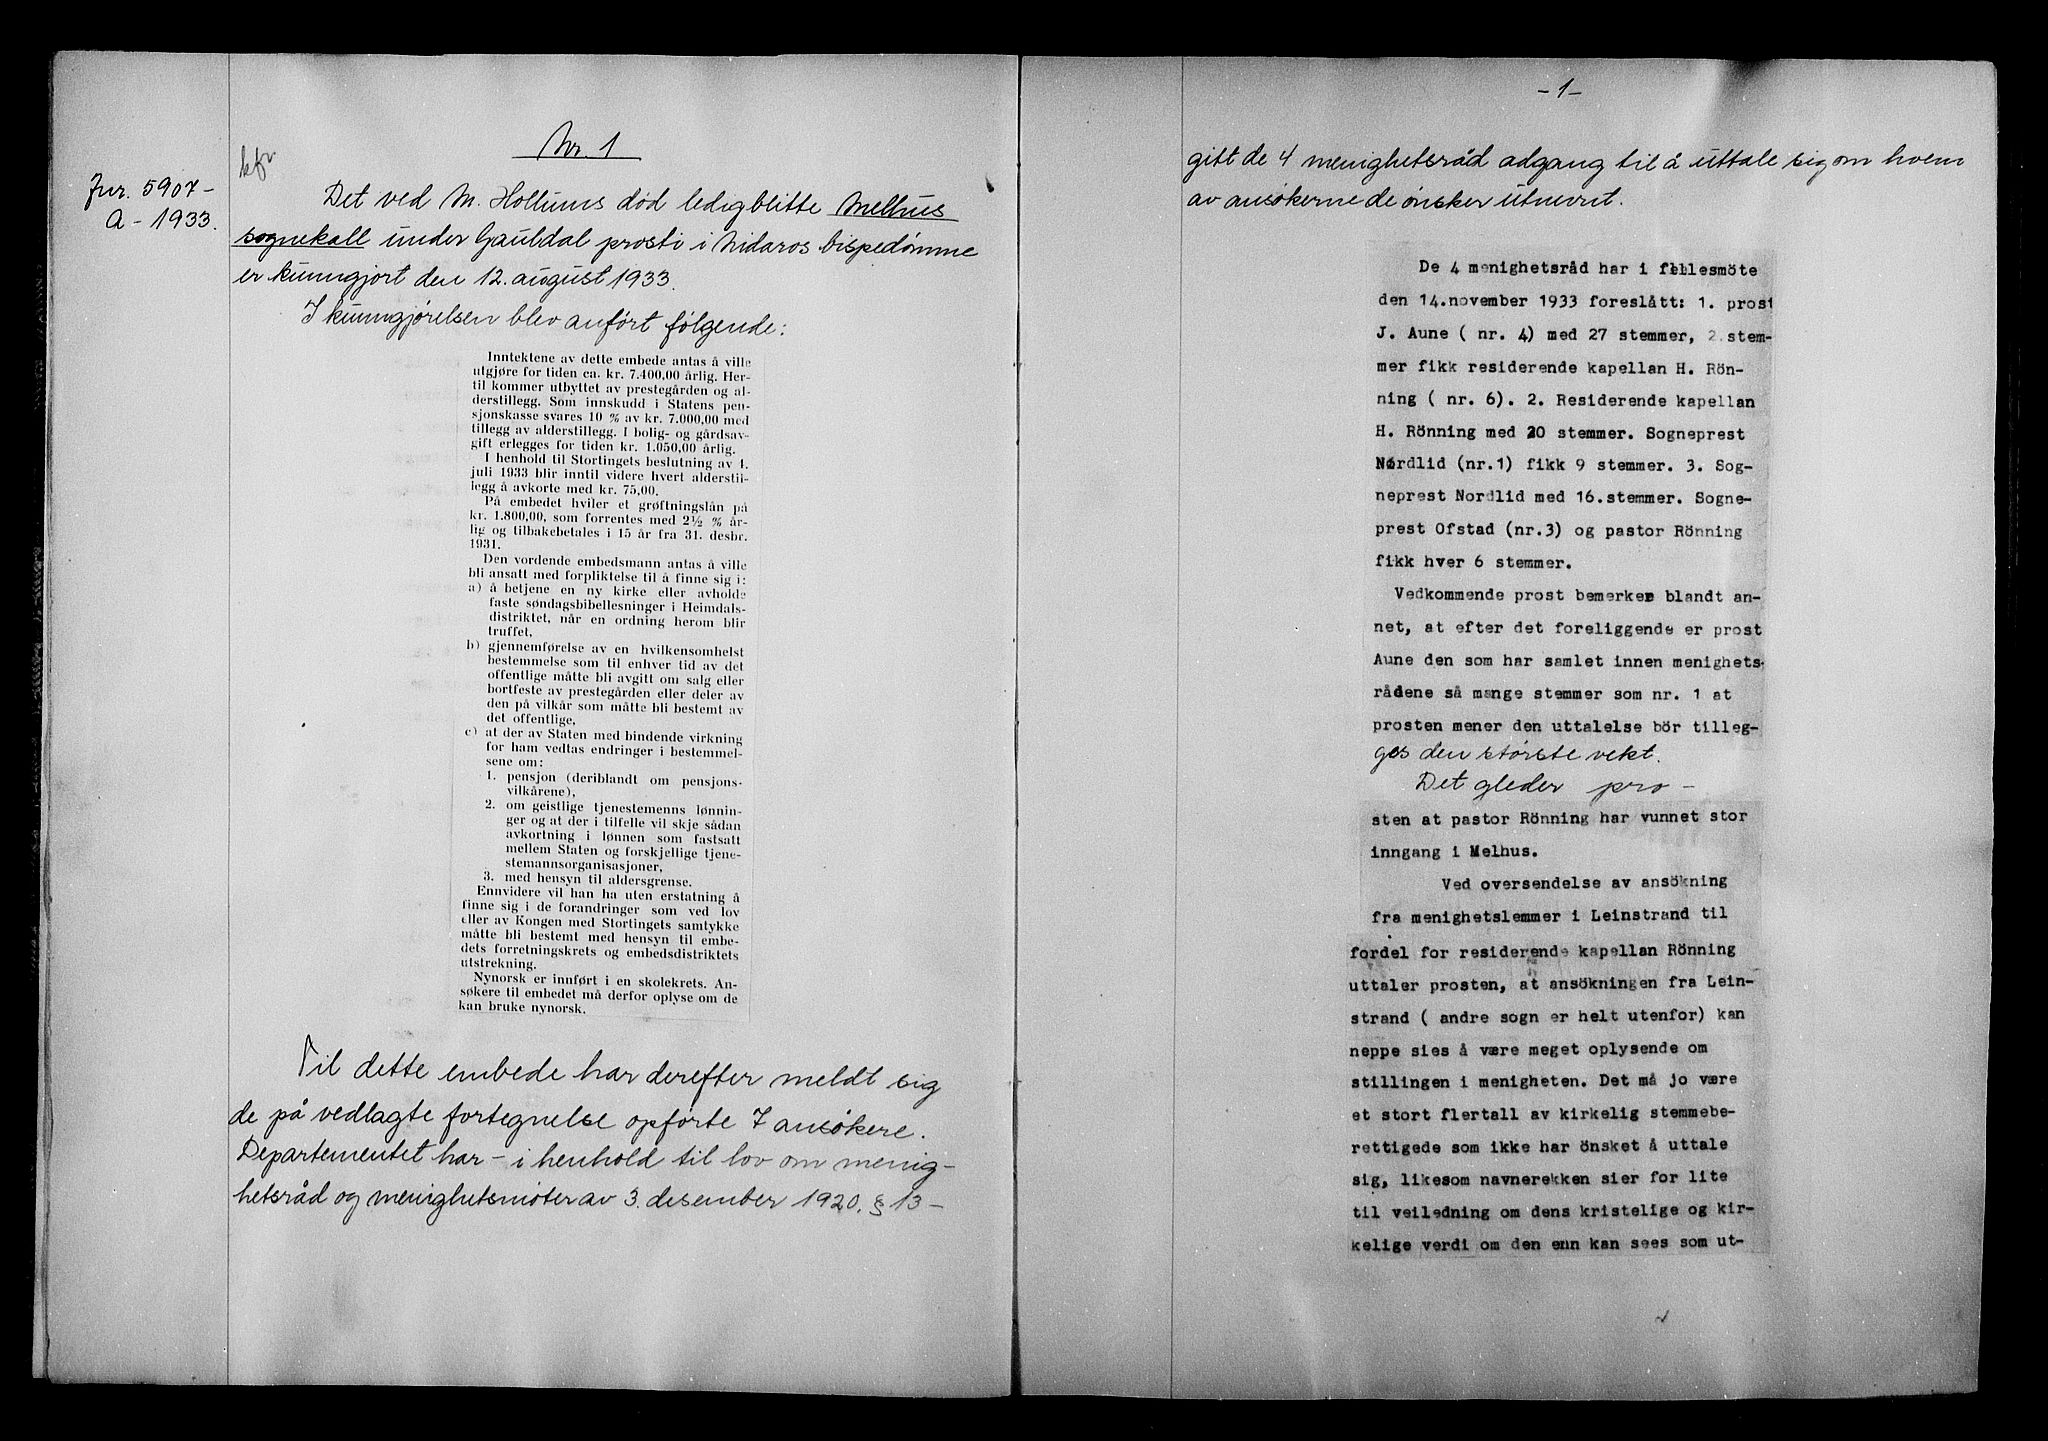 Nr. 1
kfr.
Jnr. 5907-
A - 1933.
Det ved M. Hollums død ledigblitte Melhus
sognekall under Gauldal prosti i Nidaros bispedømme
er kunngjort den 12. august 1933.
I kunngjørelsen blev anført følgende:
Inntektene av dette embede antas å ville
utgjøre for tiden ca. kr. 7.400,00 årlig. Her-
til kommer utbyttet av prestegården og al-
derstillegg. Som innskudd i Statens pen-
sjonskasse svares 10 % av kr. 7.000,00 med
tillegg av alderstillegg. I bolig- og gårdsav-
gift erlegges for tiden kr. 1.050,00 årlig.
I henhold til Stortingets beslutning av 1.
juli 1933 blir inntil videre hvert alderstil-
legg å avkorte med kr. 75,00.
På embedet hviler et grøftningslån på
kr. 1.800,00, som forrentes med 2½ % år-
lig og tilbakebetales i 15 år fra 31. desbr.
1931.
Den vordende embedsmann antas å ville
bli ansatt med forpliktelse til å finne sig i:
a) å betjene en ny kirke eller avholde
faste søndagsbibellesninger i Heimdals-
distriktet, når en ordning herom blir
truffet,
b) gjennemførelse av en hvilkensomhelst
bestemmelse som til enhver tid av det
offentlige måtte bli avgitt om salg eller
bortfeste av prestegården eller deler av
den på vilkår som måtte bli bestemt av
det offentlige,
c) at der av Staten med bindende virkning
for ham vedtas endringer i bestemmel-
sene om:
1. pensjon (deriblandt om pensjons-
vilkårene),
2. om geistlige tjenestemenns lønnin-
ger og at der i tilfelle vil skje sådan
avkortning i lønnen som fastsatt
mellem Staten og forskjellige tjene-
stemannsorganisasjoner,
3. med hensyn til aldersgrense.
Ennvidere vil han ha uten erstatning å
finne sig i de forandringer som ved lov
eller av Kongen med Stortingets samtykke
måtte bli bestemt med hensyn til embe-
dets forretningskrets og embedsdistriktets
utstrekning.
Nynorsk er innført i en skolekrets. An-
søkere til embedet må derfor oplyse om de
kan bruke nynorsk.
Til dette embede har derefter meldt sig
de på vedlagte fortegnelse opførte 7 ansøkere.
Departementet har - i henhold til lov om menig-
hetsråd og menighetsmøter av 3. desember 1920, § 13 -
- 1 -
gitt de 4 menighetsråd adgang til å uttale sig om hvem
av ansøkerne de ønsker utnevnt.
De 4 menighetsråd har i fellesmöte
den 14.november 1933 foreslått: 1. prost
J. Aune ( nr. 4) med 27 stemmer, 2.stem-
mer fikk residerende kapellan H. Rön-
ning ( nr. 6). 2. Residerende kapellan
H. Rönning med 20 stemmer. Sogneprest
Nordlid (nr.1) fikk 9 stemmer. 3. Sog-
neprest Nordlid med 16.stemmer. Sogne-
prest Ofstad (nr.3) og pastor Rönning
fikk hver 6 stemmer.
Vedkommende prost bemerker blandt an-
net, at efter det foreliggende er prost
Aune den som har samlet innen menighets-
rådene så mange stemmer som nr. 1 at
prosten mener den uttalelse bör tilleg-
ges den største vekt.
Det gleder pro-
sten at pastor Rönning har vunnet stor
inngang i Melhus.
Ved oversendelse av ansökning
fra menighetslemmer i Leinstrand til
fordel for residerende kapellan Rönning
uttaler prosten, at ansökningen fra Lein-
strand ( andre sogn er helt utenfor) kan
neppe sies å være meget oplysende om
stillingen i menigheten. Det må jo være
et stort flertall av kirkelig stemmebe-
rettigede som ikke har önsket å uttale
sig, likesom navnerekken sier for lite
til veiledning om dens kristelige og kir-
kelige verdi om den enn kan sees som ut-